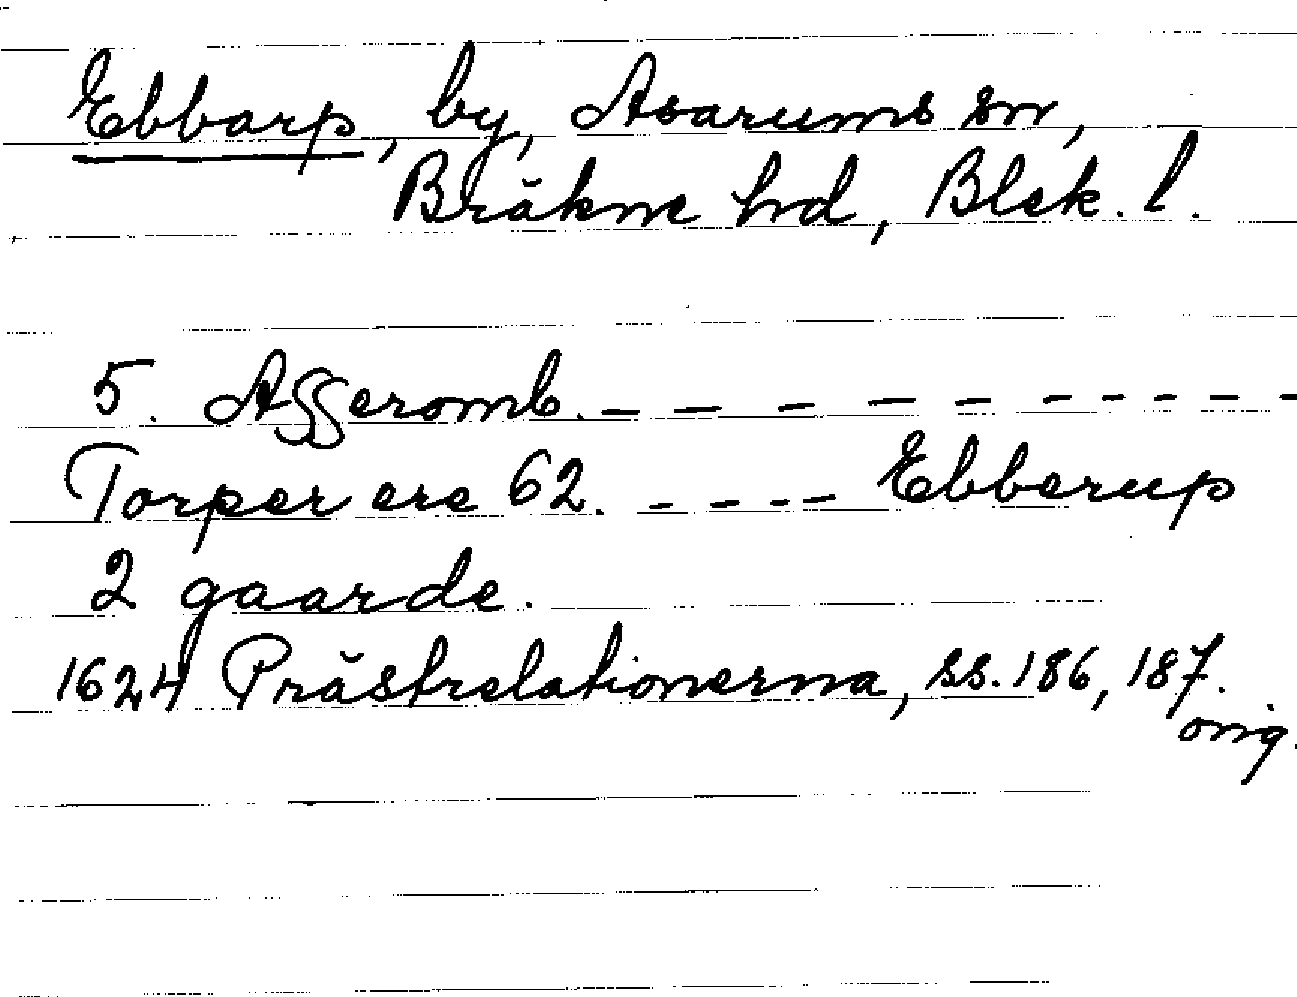 Ebbarp, by, Asarums sn,
Bräkne hd, Blek. l.
5. Asseromb. – – – – – – – – – –
Torper ere 62. – – – – Ebberup
2 gaarde.
1624 Prästrelationerna, ss. 186, 187.
orig.